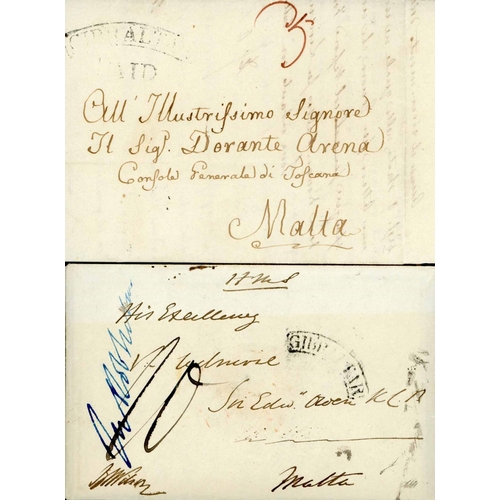 GIBRALTAR
PAID
3
All' Illustrissimo Signore
Il Sigr. Dorante Arena
Console Generale di Toscana
Malta
HMS
His Excellency
GIBRALTAR
Sir Edwd Owen K C B
Malta